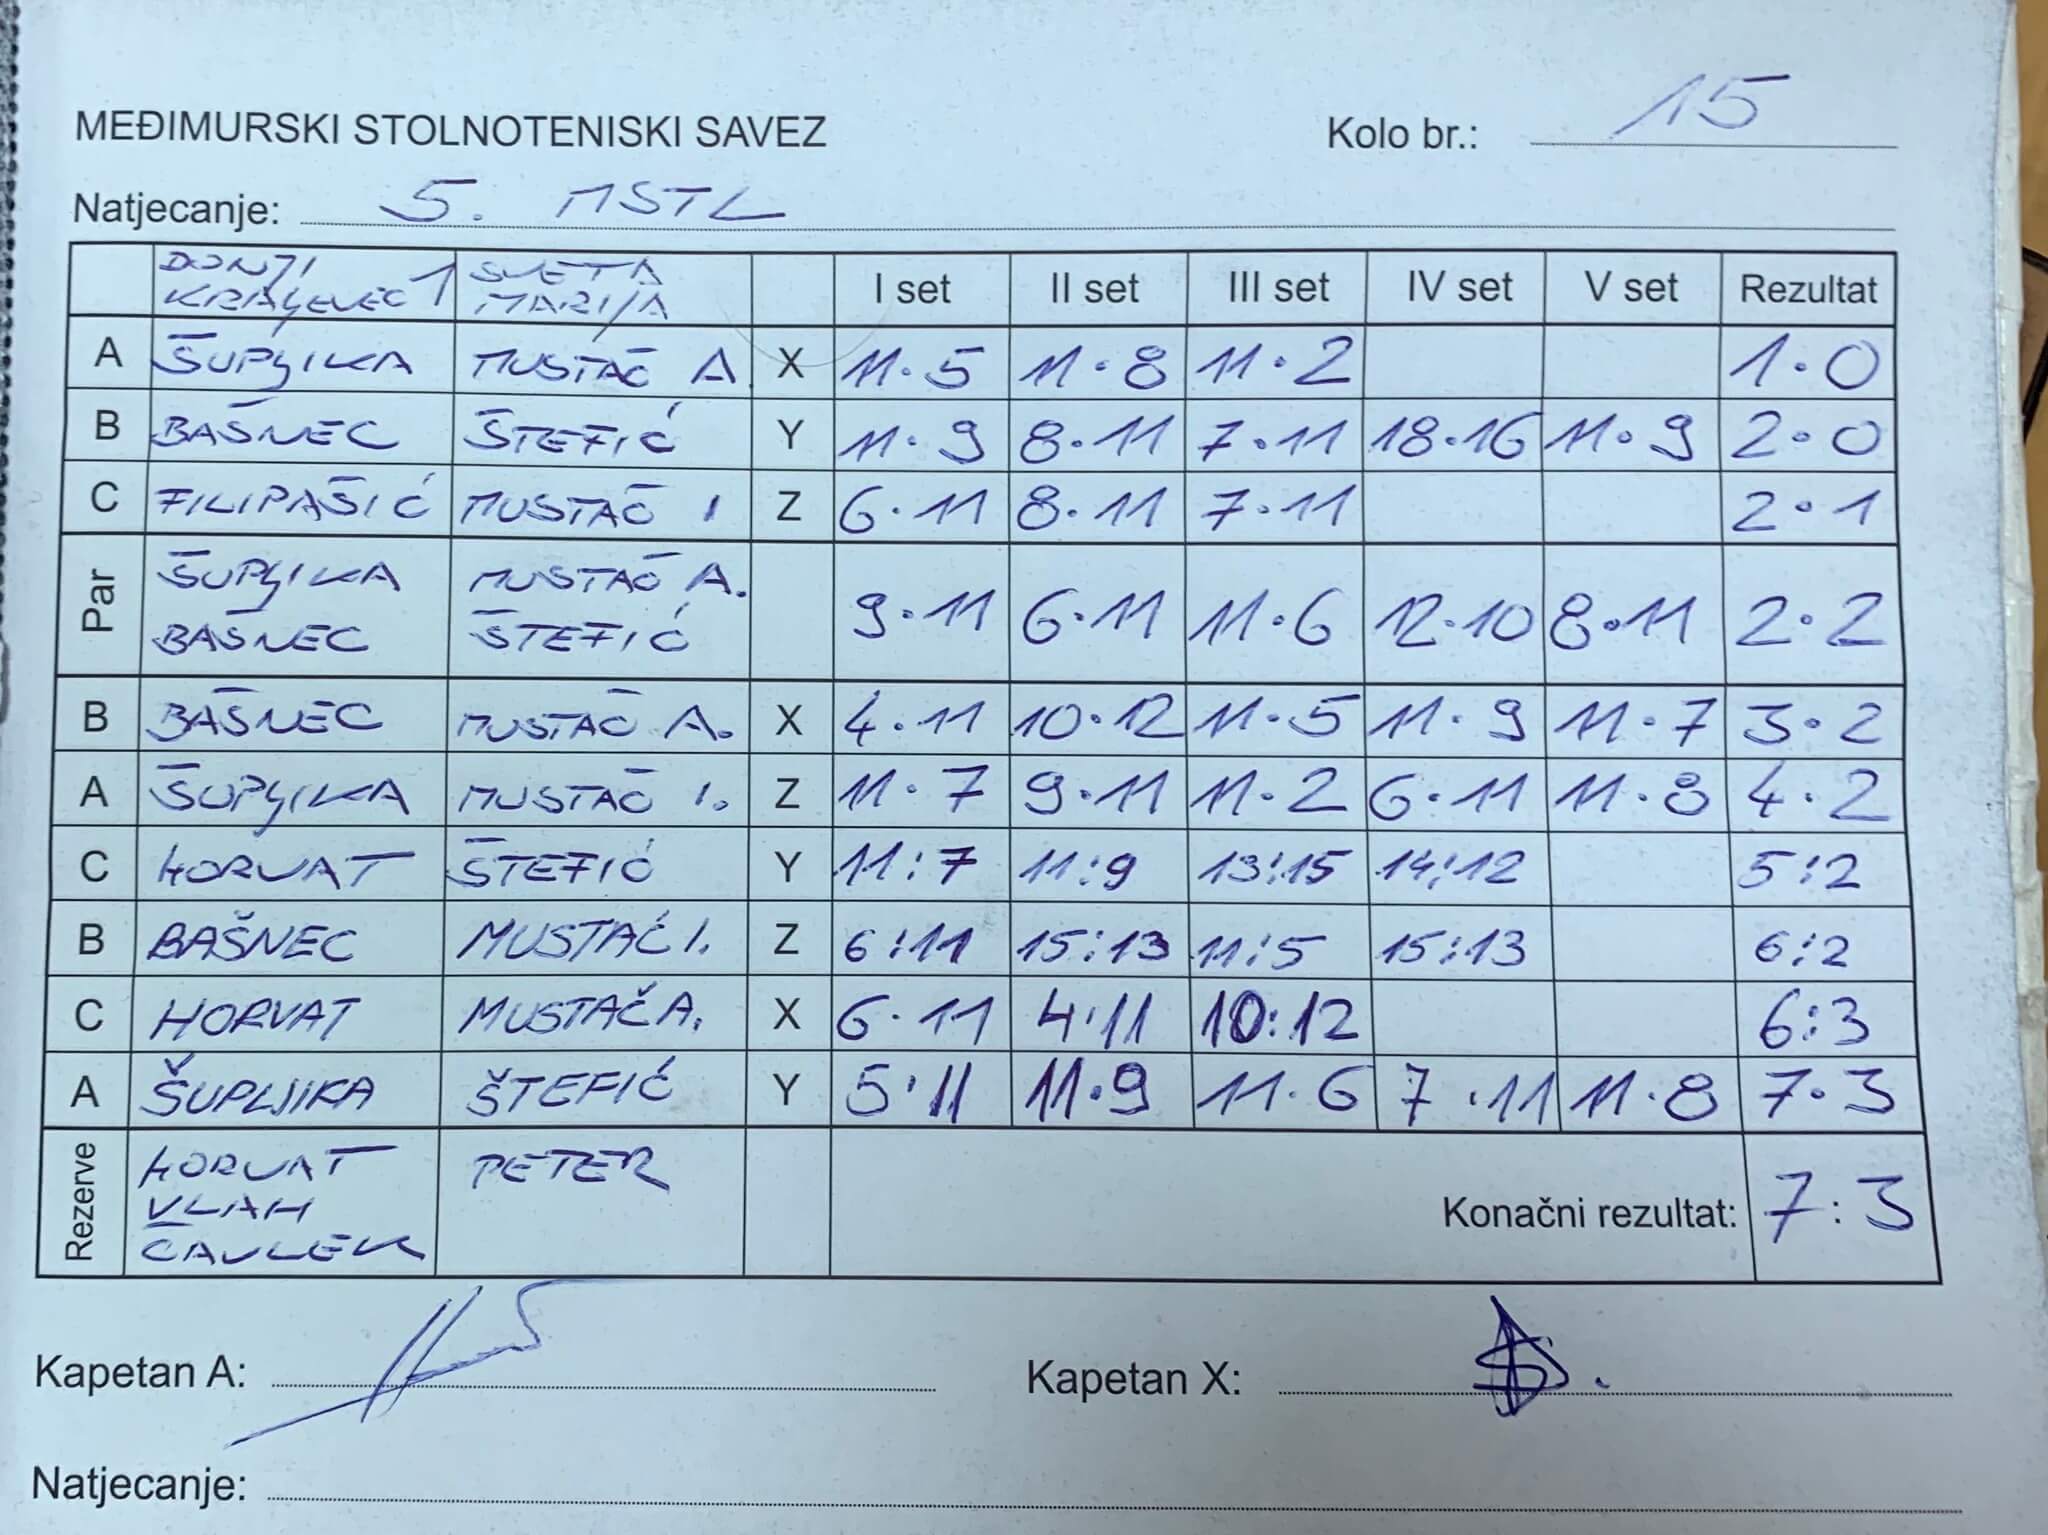 MEĐIMURSKI STOLNOTENISKI SAVEZ Kolo br.: 15
Natjecanje: 5. MSTL
DONJI KRALJEVEC 1 SVETA MARIJA I set II set III set IV set V set Rezultat
A ŠUPLJIKA MUSTAČ A X 11·5 11·8 11·2 1·0
B BAŠNEC ŠTEFIĆ Y 11·9 8·11 7·11 18·16 11·9 2·0
C FILIPAŠIĆ MUSTAČ I Z 6·11 8·11 7·11 2·1
Par ŠUPLJIKA BAŠNEC MUSTAČ A. ŠTEFIĆ 9·11 6·11 11·6 12·10 8·11 2·2
B BAŠNEC MUSTAČ A. X 4·11 10·12 11·5 11·9 11·7 3·2
A ŠUPLJIKA MUSTAČ I. Z 11·7 9·11 11·2 6·11 11·8 4·2
C HORVAT ŠTEFIĆ Y 11:7 11:9 13:15 14:12 5:2
B BAŠNEC MUSTAĆ I. Z 6:11 15:13 11:5 15:13 6:2
C HORVAT MUSTAČ A. X 6·11 4:11 10:12 6:3
A ŠUPLJIKA ŠTEFIĆ Y 5:11 11·9 11·6 7·11 11·8 7·3
Rezerve HORVAT VLAH ČAVLEK PETER Konačni rezultat: 7:3
Kapetan A: Kapetan X:
Natjecanje: